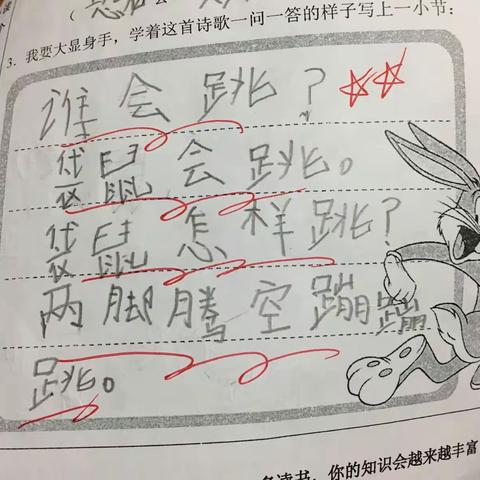 3. 我要大显身手，学着这首诗歌一问一答的样子写上一小节：
谁会跳？
袋鼠会跳。
袋鼠怎样跳？
两脚腾空蹦蹦
跳。
多读书，你的知识会越来越丰富